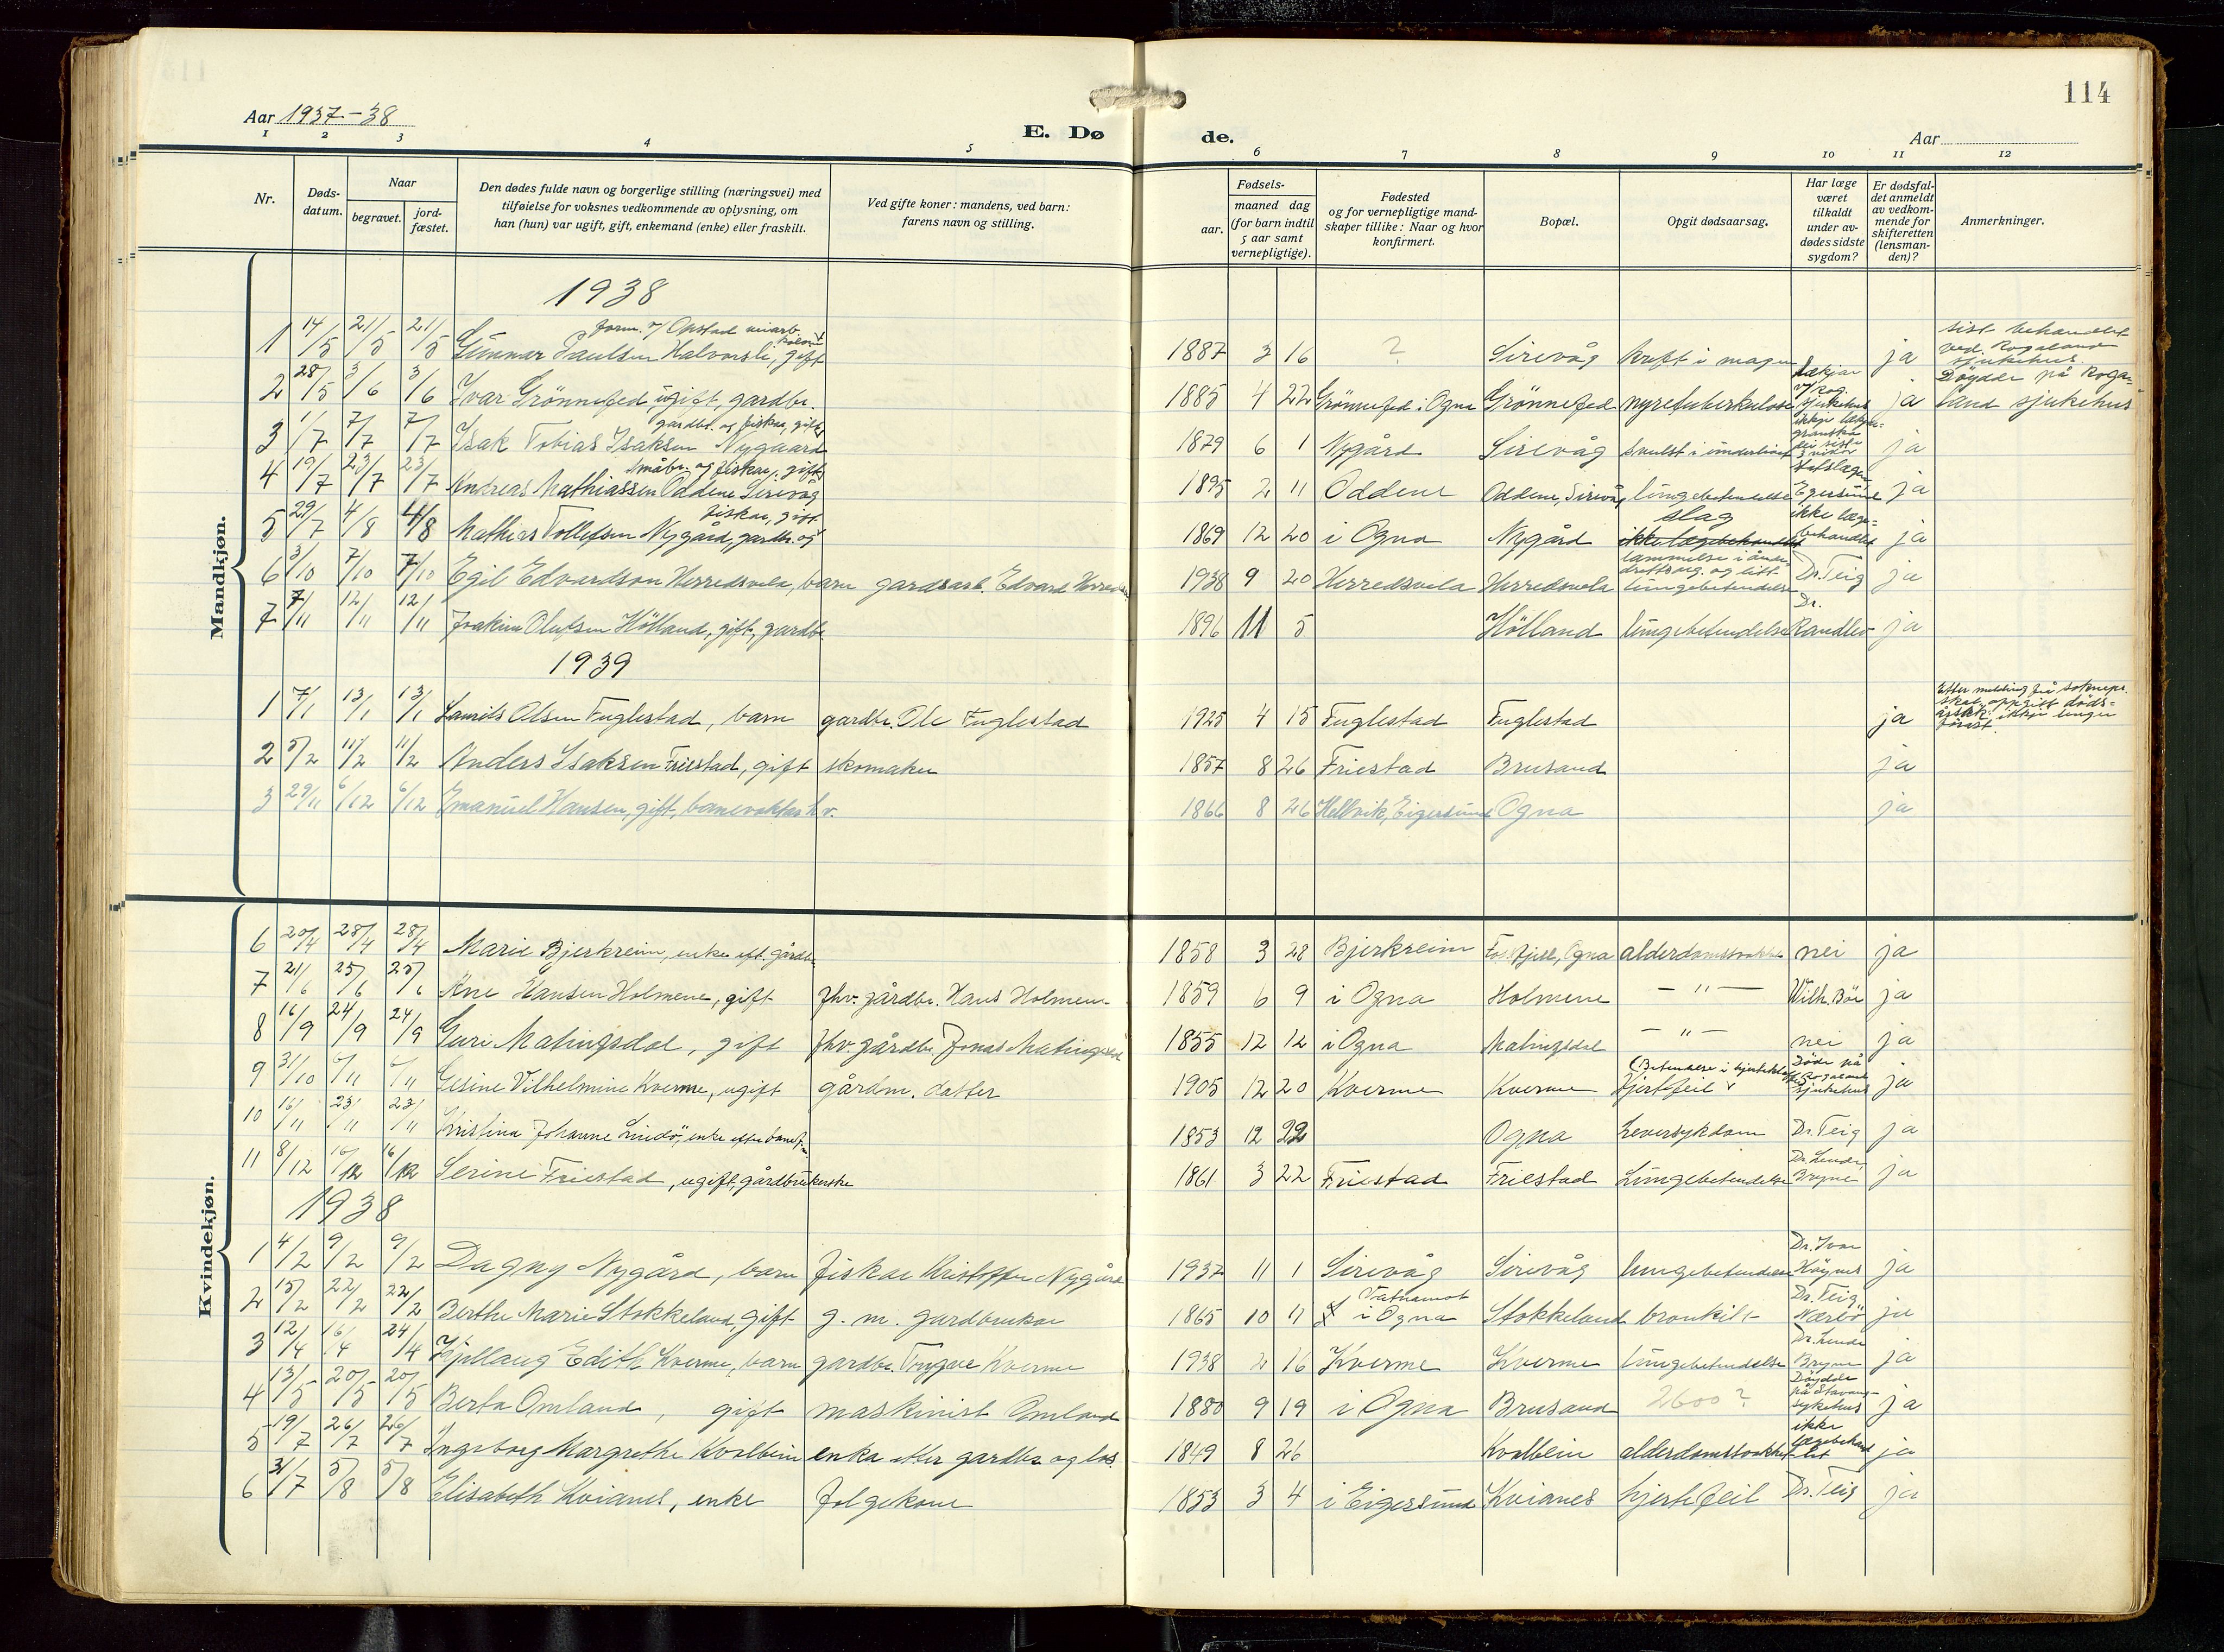 114
Aar 1937-38
E. Dø de.
Aar
1 2 3 4 5 6 7 8 9 10 11 12
Nr.
Døds-
datum.
Naar
begravet.
jord-
fæstet.
Den dødes fulde navn og borgerlige stilling (næringsvei) med
tilføielse for voksnes vedkommende av oplysning, om
han (hun) var ugift, gift, enkemand (enke) eller fraskilt.
Ved gifte koner: mandens, ved barn:
farens navn og stilling.
Fødsels-
aar.
maaned dag
(for barn indtil
5 aar samt
vernepligtige).
Fødested
og for vernepligtige mand-
skaper tillike: Naar og hvor
konfirmert.
Bopæl.
Opgit dødsaarsag.
Har læge
været
tilkaldt
under av-
dødes sidste
sygdom?
Er dødsfal-
det anmeldt
av vedkom-
mende for
skifteretten
(lensman-
den)?
Anmerkninger.
Mandkjøn.
1938
1 14/5 21/5 21/5 Gunnar Paulsen Halvorsli, gift 1887 3 16 ? Sirevåg kreft i magen ja sist behandlet ved Rogaland sjukehus.
2 28/5 3/6 3/6 Ivar Grønnefed, ugift, gardbr. 1885 4 22 Grønnefed i Ogna Grønnefed nyretuberkulose sjukehus ja Døydde på Roga-
land sjukehus
3 1/7 7/7 7/7 Isak Tobias Isaksen Nygaard gardbr. og fiskar, gift 1879 6 1 Nygård Sirevåg svulst i underlivet ja
4 19/7 23/7 23/7 Andreas Mathiassen Oddene Sirevåg småbr. og fiskar, gift 1895 2 11 Oddene Oddene, Sirevåg lungebetendelse Egersund ja
5 29/7 4/8 4/8 Mathias Tollefsen Nygård, gardbr. og fiskar, gift 1869 12 20 i Ogna Nygård slag ikke læge-
behandlet ja
6 3/10 7/10 7/10 Egil Edvardson Herredsvela, barn gardsarb. Edvard 1938 9 20 Herredsvela Herredsvela lungebetendelse Dr. Teig ja
7 7/11 12/11 12/11 Joakim Olufsen Hølland, gift, gardbr. 1896 11 5 Hølland lungebetendelse Dr. Randlev ja
1939
1 7/1 13/1 13/1 Laurits Olsen Fuglestad, barn gardbr. Ole Fuglestad 1925 4 15 Fuglestad Fuglestad ja Etter melding frå sokneprs. skal oppgitt døds-
årsak ikkje lenger førast.
2 5/2 11/2 11/2 Anders Isaksen Friestad, gift skomaker 1857 8 26 Friestad Brusand ja
3 29/11 6/12 6/12 Emanuel Hansen, gift, banevokter h.v. 1866 8 26 Hellvik, Eigersund Ogna ja
Kvindekjøn.
6 20/4 28/4 28/4 Marie Bjerkreim, enke eft. gårdbr. 1858 3 28 Bjerkreim Ogna alderdomssvakhet nei ja
7 21/6 25/6 25/6 Ane Hansen Holmene, gift fhv. gårdbr. Hans Holmen 1859 6 9 i Ogna Holmene - " - Wilh. Bøe ja
8 16/9 24/9 24/9 Guri Matingsdal, gift fhv. gårdbr. Jonas Matingsdal 1855 12 12 i Ogna Matingsdal - " - nei ja
9 31/10 6/11 6/11 Gesine Vilhelmine Kverme, ugift gårdm. datter 1905 12 20 Kverme Kverme hjertefeil (Betendelse i Døde på Rogaland sjukehus ja
10 16/11 23/11 23/11 Kristina Johanne Lindø, enke efter 1853 12 22 Ogna Leversykdom Dr. Teig ja
11 8/12 16/12 16/12 Serine Friestad, ugift, gårdbrukerske 1861 3 22 Friestad Friestad Lungebetendelse Dr. Lende, Bryne ja
1938
1 4/2 9/2 9/2 Dagny Nygård, barn fiskar Kristoffer Nygård 1937 11 1 Sirevåg Sirevåg lungebetendelse Dr. Ivar Høynes ja
2 15/2 22/2 22/2 Berthe Marie Stokkeland, gift g. m. gardbrukar 1865 10 11 Tatnamot i Ogna Stokkeland bronkitt Dr. Teig, Nærbø ja
3 12/4 16/4 24/4 Kjellaug Edith Kverme, barn gardbr. Trygve Kverme 1938 2 16 Kverme Kverme lungebetendelse Dr. Lende Bryne ja
4 13/5 20/5 20/5 Berta Omland, gift maskinist Omland 1880 9 19 i Ogna Brusand 2600? Døydde på Stavang. sykehus ja
5 19/7 26/7 26/7 Ingeborg Margrethe Kvalbein enke etter gardbr. og los 1849 8 26 Kvalbein alderdomssvakhet ikke lægebehandlet ja
6 31/7 5/8 5/8 Elisabeth Kvianes, enke folgekone 1853 3 4 i Eigersund Kvianes hjertefeil Dr. Teig ja